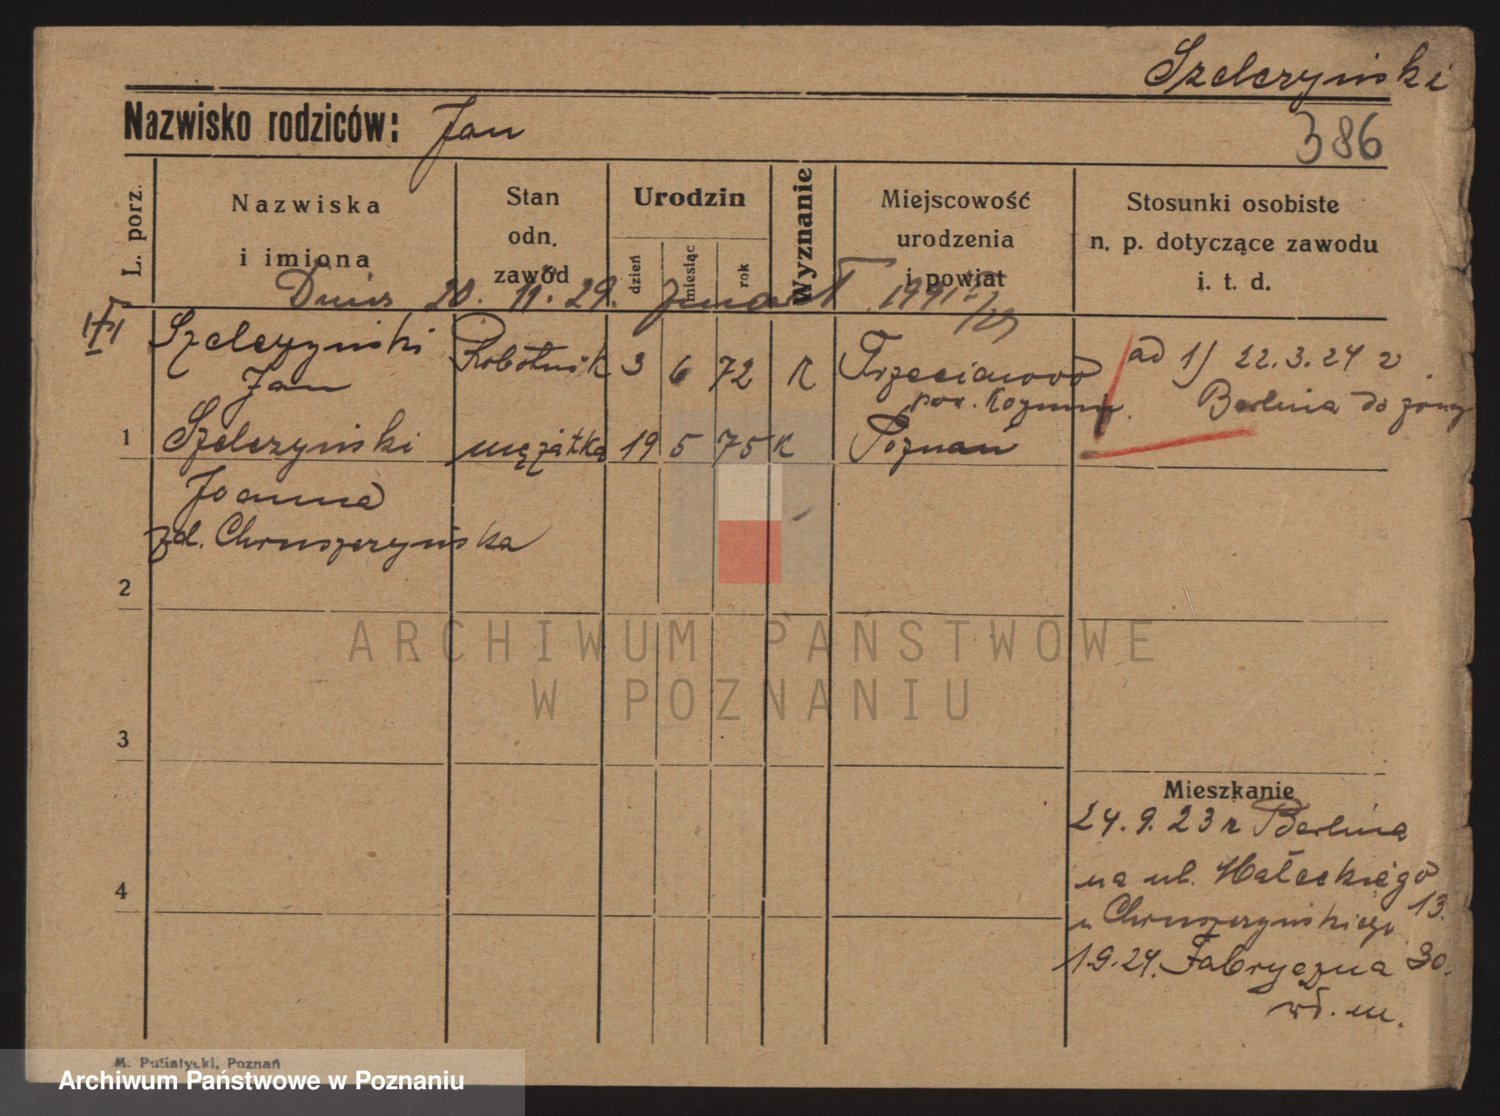 Szelczyński
Nazwisko rodziców: Jan
386
L. porz.
Nazwiska
i imiona
Stan
odn.
zawód
Urodzin
dzień
miesiąc
rok
Wyznanie
Miejscowość
urodzenia
i powiat
Stosunki osobiste
n. p. dotyczące zawodu
i. t. d.
Dnia 20. 11. 29. zmarł
Szelczyński Robotnik 3 6 72 K Trzecianowo ad 1) 22.3.24 z
Jan pow. Berlina do żony
1 Szelczyński mężatka 19 5 75 K Poznań
Joanna
zd. Chruszczyńska
2
ARCHIWUM PAŃSTWOWE
W POZNANIU
3
Mieszkanie
24.9.23 z Berlina
na ul. Małeckiego
4
u Chruszczyńskiego 13.
1.9.24. Fabryczna 30.
wł. m.
M. Putiatycki, Poznań
Archiwum Państwowe w Poznaniu